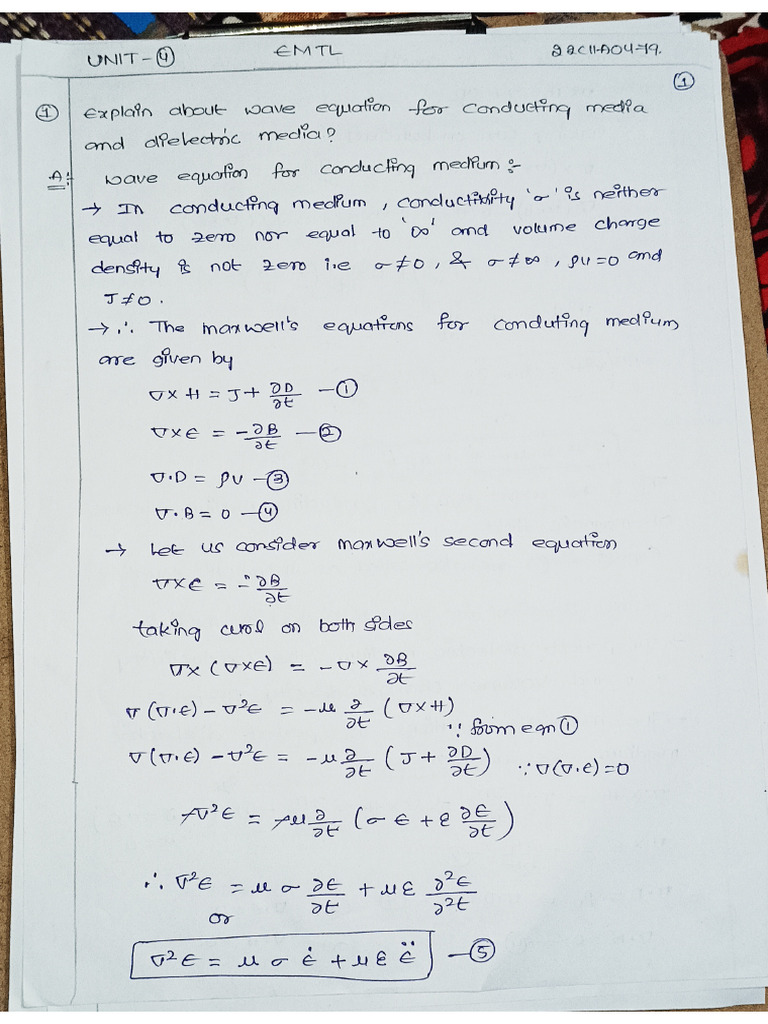 UNIT-④ EMTL 22C11A0479.
①
① Explain about wave equation for conducting media
and dielectric media?
A:- wave equation for conducting medium:-
→ In conducting medium, conductivity 'σ' is neither
equal to zero nor equal to '∞' and volume charge
density is not zero i.e σ≠0, & σ≠∞, ρv=0 and
J≠0.
→ ∴ The maxwell's equations for conduting medium
are given by
∇×H = J + ∂D/∂t —①
∇×E = -∂B/∂t —②
∇·D = ρv —③
∇·B = 0 —④
→ Let us consider maxwell's second equation
∇×E = -∂B/∂t
taking curol on both sides
∇×(∇×E) = -∇× ∂B/∂t
∇(∇·E) - ∇²E = -μ ∂/∂t (∇×H)
∵ from eqn ①
∇(∇·E) - ∇²E = -μ ∂/∂t (J + ∂D/∂t) ∵ ∇(∇·E)=0
-∇²E = -μ ∂/∂t (σE + ε ∂E/∂t)
∴ ∇²E = μσ ∂E/∂t + με ∂²E/∂²t
or
∇²E = μσĖ + μεË —⑤